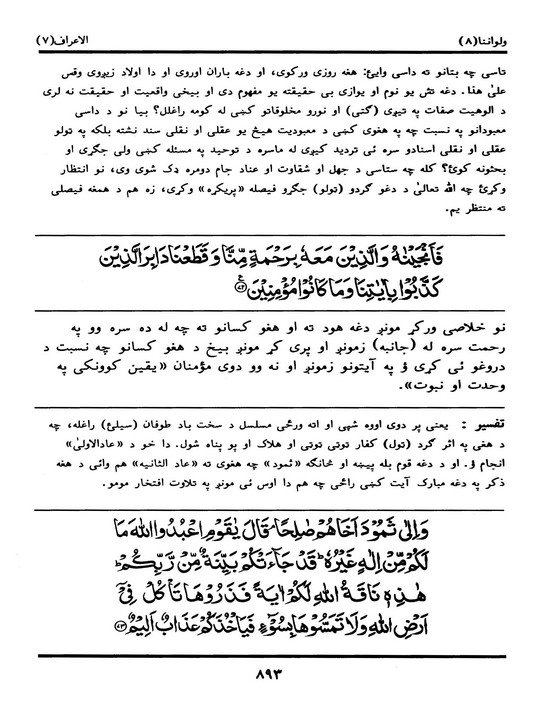 ولواننا(۸)
الاعراف(۷)
تاسي چه بتانو ته داسي وایئ: هغه روزي ورکوي، او دغه باران اوروي او دا اولاد زیږوي وقس
علیٰ هٰذا. دغه تش یو نوم او یوازي بی حقیقته یو مفهوم دی او بیخي واقعیت او حقیقت نه لري
د الوهیت صفات په تیږي (گټي) او نورو مخلوقاتو کښی له کومه راغلل؟ بیا نو د داسي
معبودانو په نسبت چه په هغوی کښی د معبودیت هیڅ یو عقلي او نقلي سند نشته بلکه په ټولو
عقلي او نقلي اسنادو سره ئی تردید کیږي له ماسره د توحید په مسئله کښی ولی جگړی او
بحثونه کوئ؟ کله چه ستاسي د جهل او شقاوت او عناد جام دومره ډک شوی وی، نو انتظار
وکړئ چه الله تعالیٰ د دغو گردو (ټولو) جگړو فیصله «پریکړه» وکړی، زه هم د همغه فیصلی
ته منتظر یم.
فَاَنْجَيْنٰهُ وَالَّذِيْنَ مَعَهٗ بِرَحْمَةٍ مِّنَّا وَقَطَعْنَا دَابِرَ الَّذِيْنَ
كَذَّبُوْا بِاٰيٰتِنَا وَمَا كَانُوْا مُؤْمِنِيْنَ ﴿۷۲﴾
نو خلاصی ورکړ مونږ دغه هود ته او هغو کسانو ته چه له ده سره وو په
رحمت سره له (جانبه) زمونږ او پری کړ مونږ بیخ د هغو کسانو چه نسبت د
دروغو ئی کړی ؤ په آیتونو زمونږ او نه وو دوی مؤمنان «یقین کوونکی په
وحدت او نبوت».
تفسیر : یعنی پر دوی اووه شپی او اته ورځی مسلسل د سخت باد طوفان (سیلۍ) راغله، چه
د هغی په اثر گرد (ټول) کفار ټوټی ټوټی او هلاک او پو پناه شول. دا خو د «عادالاولیٰ»
انجام ؤ. او د دغه قوم بله پیښه او څانگه «ثمود» چه هغوی ته «عاد الثانیه» هم وائی د هغه
ذکر په دغه مبارک آیت کښی راځی چه هم دا اوس ئی مونږ په تلاوت افتخار مومو.
وَاِلٰى ثَمُوْدَ اَخَاهُمْ صٰلِحًا قَالَ يٰقَوْمِ اعْبُدُوا اللهَ مَا
لَكُمْ مِّنْ اِلٰهٍ غَيْرُهٗ قَدْ جَآءَتْكُمْ بَيِّنَةٌ مِّنْ رَّبِّكُمْ
هٰذِهٖ نَاقَةُ اللهِ لَكُمْ اٰيَةً فَذَرُوْهَا تَأْكُلْ فِيْٓ
اَرْضِ اللهِ وَلَا تَمَسُّوْهَا بِسُوْٓءٍ فَيَأْخُذَكُمْ عَذَابٌ اَلِيْمٌ ﴿۷۳﴾
۸۹۳